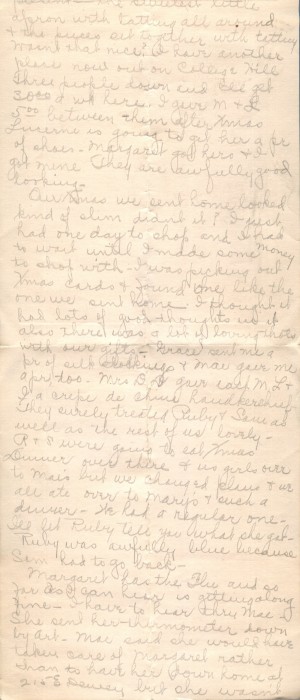 the sweetest little
apron with tatting all around
& the pieces set together with tatting
wasn't that nice? I have another
place now out on College Hill
three people down and I'll get
30.00 if we here. I gave M & L
5.00 between them after Xmas
Lucerne is going to get her a pr
of shoes. Margaret got hers & I
got mine They are awfully good
looking.
Our Xmas we sent home looked
kind of slim didn't it? I just
had one day to shop and I had
to wait until I made some money
to shop with. I was picking out
Xmas cards & found one like the
one we sent home. I thought it
had lots of good thoughts in it
also there was a lot of loving thots
with our gifts. Grace sent me a
pr of silk stockings & Mae gave me
a pr, too. Mrs D. gave each M, L &
I a crepe de chine handkerchief
They surely treated Ruby & Sam as
well as the rest of us lovely.
R & S were going to eat Xmas
Dinner over there & us girls over
to Mae's but we changed plans & we
all ate over to Marys & such a
dinner. We had a regular one.
I'll let Ruby tell you what she got.
Ruby was awfully blue because
Sam had to go back.
Margaret has the Flu and so
far as I can hear is getting along
fine. I have to hear thru Mae
She sent her thermometer down
by Art. Mae said she would have
taken care of Margaret rather
than to have her down home at
2158 Dewey but she wasn't